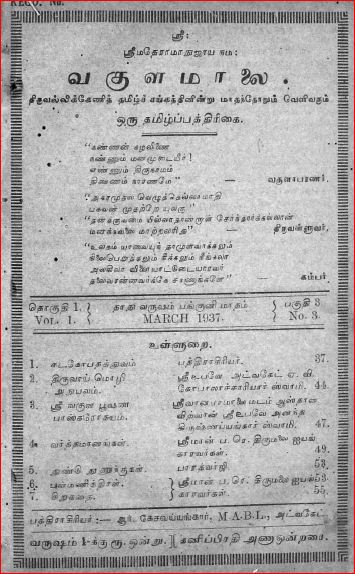 ஸ்ரீ:
ஸ்ரீமதேராமாநுஜாய நம:
வகுளமாலை.
திருவல்லிக்கேணித் தமிழ்ச் சங்கத்தினின்று மாதந்தோறும் வெளிவரும்
ஒரு தமிழ்ப்பத்திரிகை.
"கண்ணன் கழலிணை
நண்ணும் மனமுடையீர்!
எண்ணும் திருநாமம்
திண்ணம் நாரணமே"
"அகரமுதல வெழுத்தெல்லாமாதி
பகவன் முதற்றே யுலகு"
"தனக்குவமை யில்லாதான்றாள் சேர்ந்தார்க்கல்லான்
மனக்கவலை மாற்றலரிது" — திருவள்ளுவர்,
"உலகம் யாவையுந் தாமுளவாக்கலும்
நிலைபெறுத்தலும் நீக்கலும் நீங்கலா
அலகிலா விளையாட்டுடையாரவர்
தலைவரன்னவர்க்கே சரணாங்களே" — கம்பர்
தொகுதி 1. } தாது வருஷம் பங்குனி மாதம். { பகுதி 3.
VOL. 1. } MARCH 1937. { No. 3.
உள்ளுறை.
1. சடகோபதத்துவம் பத்திராசிரியர். 37.
2. திருவாய் மொழி ஸ்ரீ உபவே அட்வகேட் ஏ. வி.
அநுபவம். கோபாலாச்சாரியார் ஸ்வாமி. 44.
3. ஸ்ரீ வகுள பூஷண ஸ்ரீவானமாமலை மடம் ஆஸ்தான
பாஸ்கரோதயம். வித்வான் ஸ்ரீ உபவே அனந்த
கிருஷ்ணய்யங்கார் ஸ்வாமி. 47.
4. வர்த்தமானங்கள். ஸ்ரீமான் ப. ரெ. திருமலை ஐயங்
கார்வர்கள். 49.
5. துணுக்குகள். 53.
6. புன்மணித்திரள். } ஸ்ரீமான் ப. ரெ. திருமலை ஐயங் 53.
7. சிறுகதை. } கார்வர்கள். 55.
பத்திராசிரியர் :— ஆர். கேசவய்யங்கார், M.A.B.L., அட்வகேட்.
வருஷம் 1-க்கு ரூ. ஒன்று.][தனிப்பிரதி அணா ஒன்றரை.